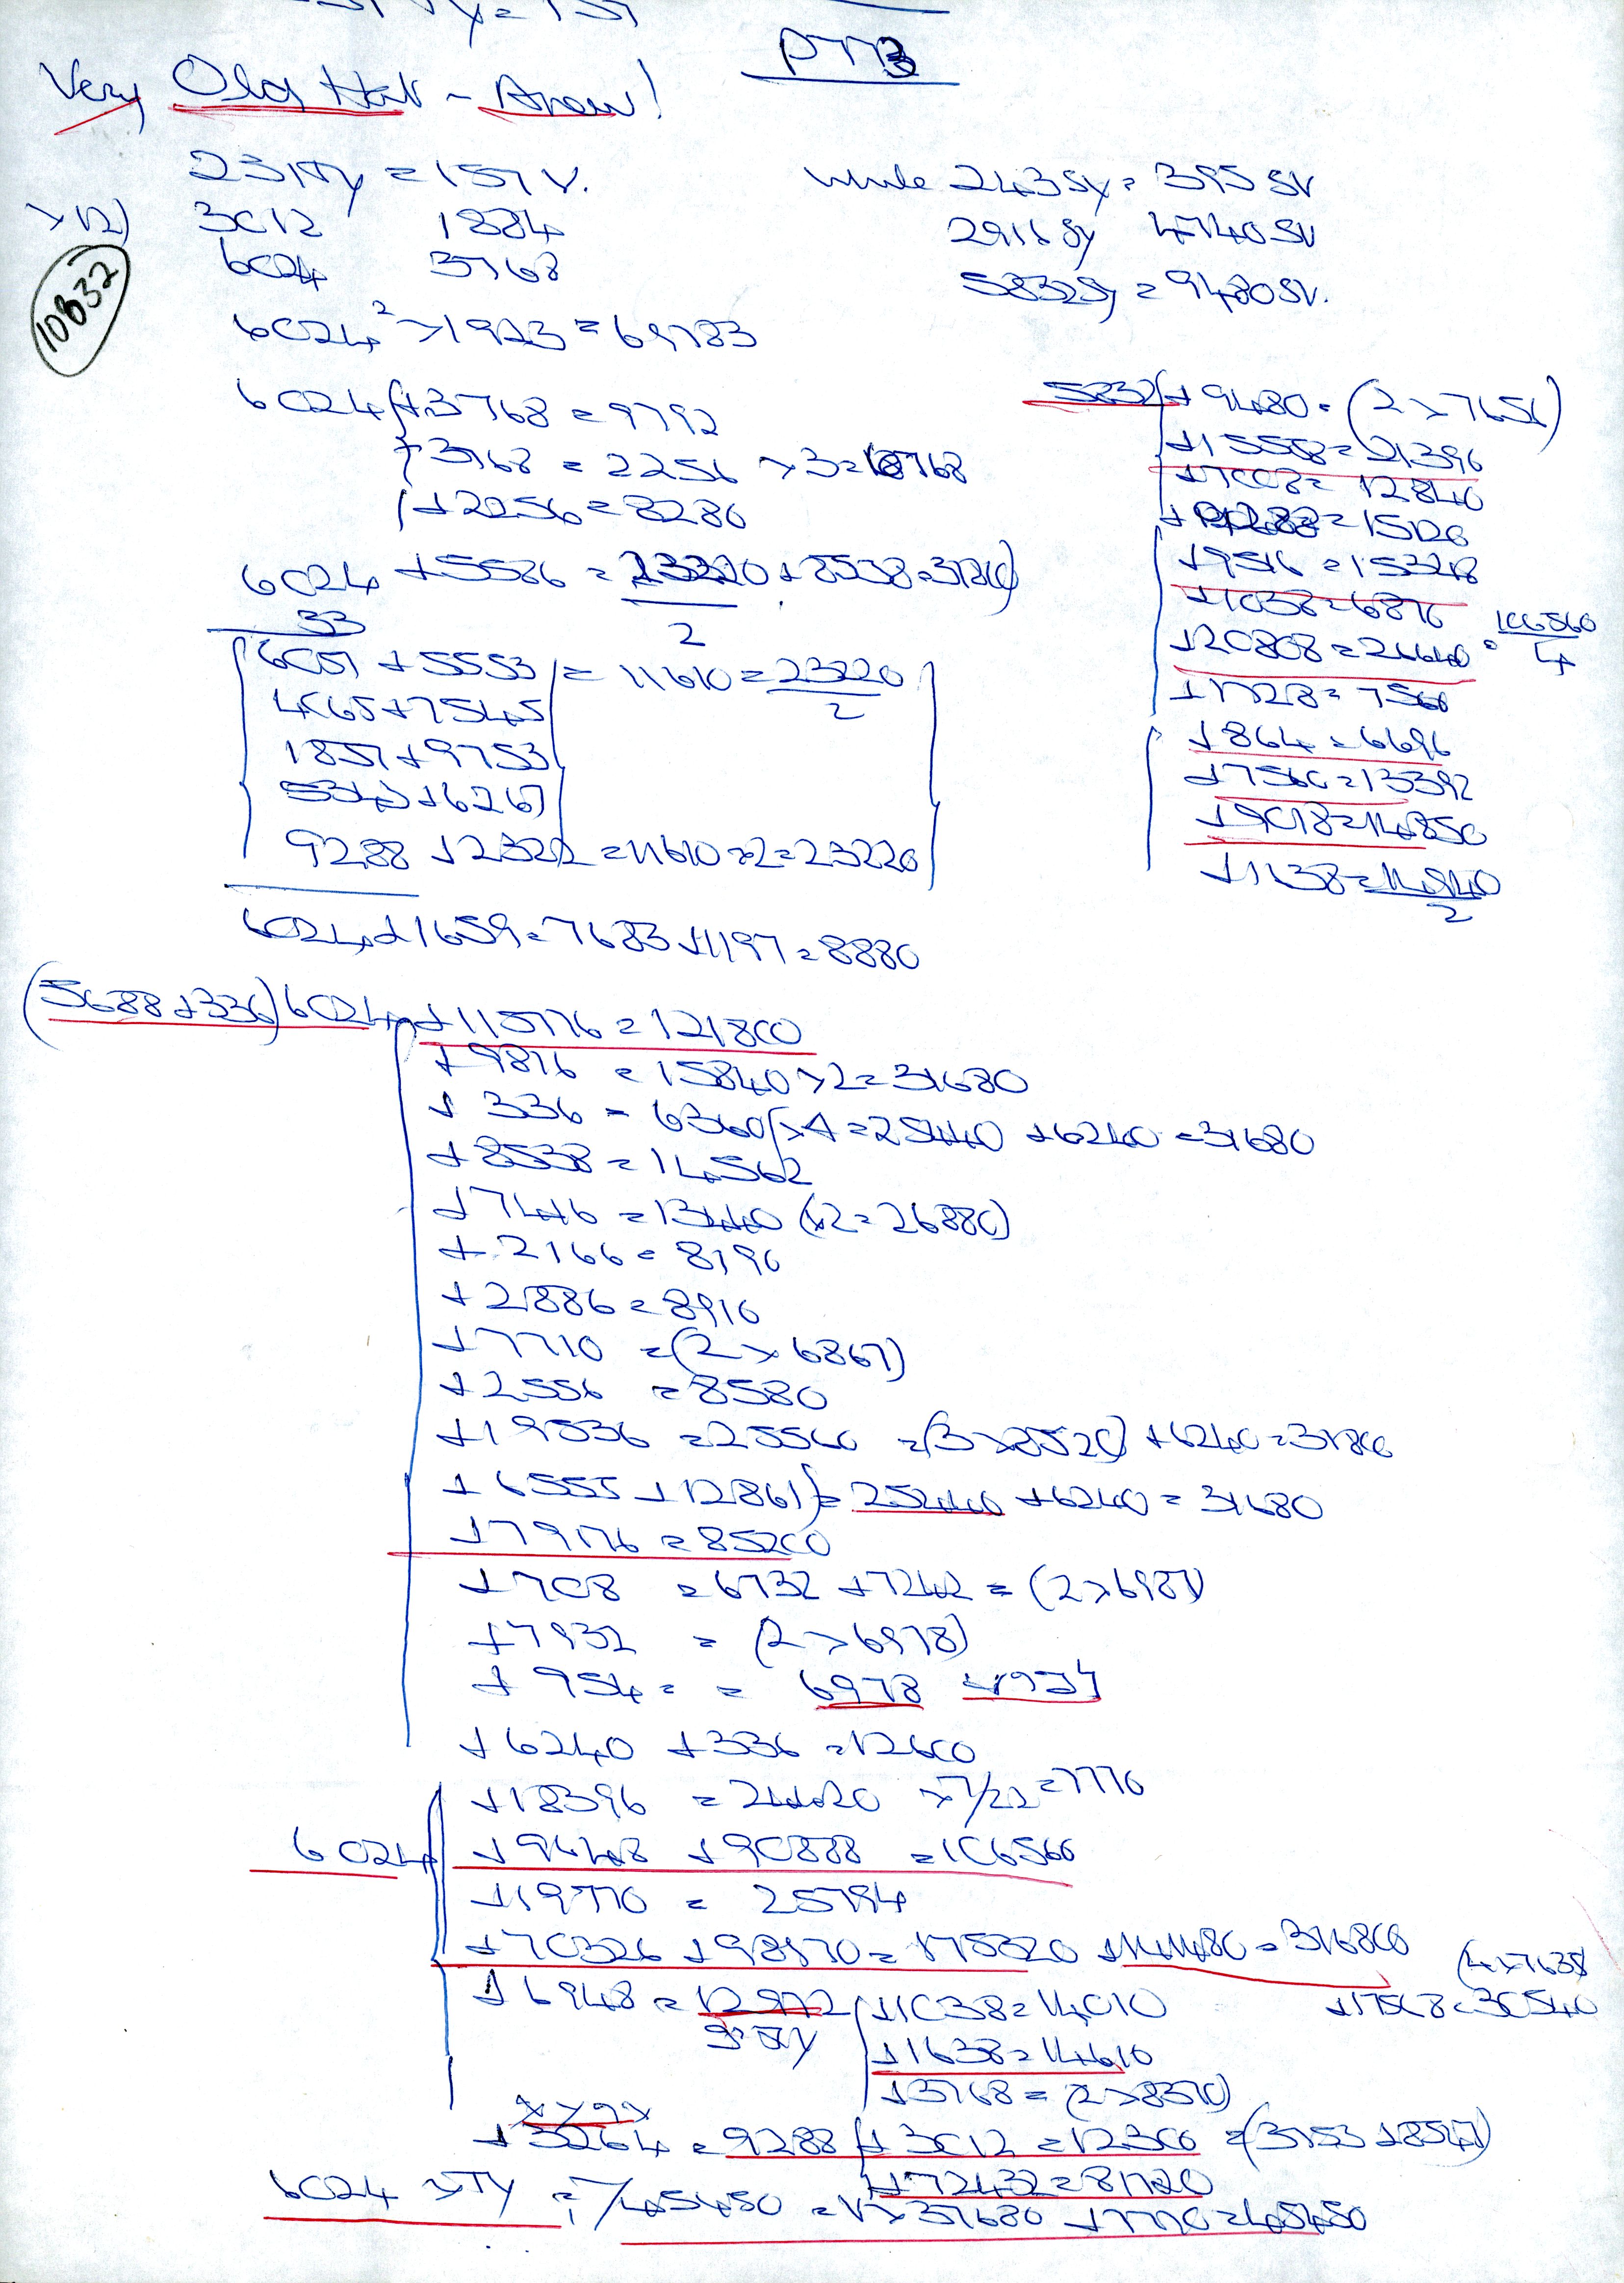 PT 3
Very Old Hat - Anew!
251 TY = 157 V. while 243 SY = 395 SV
×12) 3012 1884 2916 SY 4740 SV
6024 3768 5832 SY = 9480 SV.
10832
6024² × 1923 = 69783
6024 + 3768 = 9792
÷ 3768 = 2256 × 3 = 6768
+ 2256 = 8280
6024 + 5586 = 23220 + 8538 = 31760)
33 2
6057 + 5553 = 11610 = 23220
4065 + 7545 2
1857 + 9753
5343 + 6267
9288 + 2322 = 11610 × 2 = 23220
6024 + 1659 = 7683 + 1197 = 8880
5832 + 9480 = (2 × 7656)
+ 15558 = 21396
+ 7008 = 12840
= 15120
+ 9516 = 15348
+ 1038 = 6870
+ 20808 = 26640 = 106560
4
+ 1728 = 7560
+ 864 = 6696
+ 7560 = 13392
+ 9018 = 14850
+ 1638 = 14940
2
(5688 + 336) 6024 + 115776 = 121800
+ 9816 = 15840 × 2 = 31680
+ 336 = 6360 × 4 = 25440 + 6240 = 31680
+ 8538 = 14562
+ 7416 = 13440 (×2 = 26880)
+ 2166 = 8190
+ 2886 = 8910
+ 7710 = (2 × 6867)
+ 2556 = 8580
+ 19536 = 25560 = (3 × 8520) + 6240 = 31800
+ 6555 + 12861) = 25440 + 6240 = 31680
+ 79176 = 85200
+ 708 = 6732 + 7242 = (2 × 6987)
+ 7932 = (2 × 6978)
+ 954 = = 6978
+ 6240 + 336 = 12600
+ 18396 = 24420 × 7/22 = 7770
6024 + 9648 + 90888 = 106560
+ 19770 = 25794
+ 70326 + 98970 = 175320 + 141480 = 316800 (4 × 7635)
+ 6948 = 12972 + 1038 = 14010 + 17568 = 30540
+ 1638 = 14610
+ 3768 = (2 × 8370)
+ 3264 = 9288 + 3012 = 12300 = (3753 + 8547)
+ 72432 = 81720
6024 × TY = 7/45450 = 1 × 37680 + 7770 = 45450